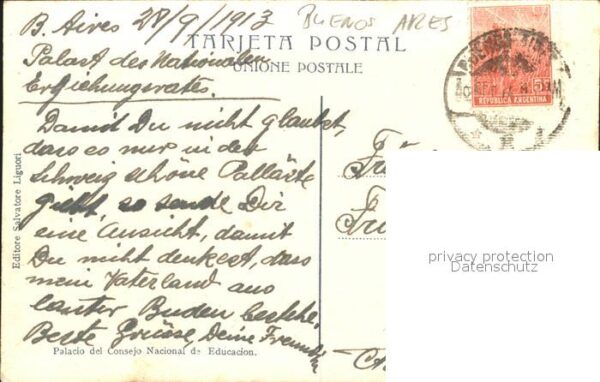 B. Aires 28/9/1913
BUENOS AIRES
TARJETA POSTAL
UNIONE POSTALE
Palast des Nationalen
Erziehungsrates.
Damit Du nicht glaubst,
dass es nur in der
Schweiz schöne Palläste
giebt, so sende Dir
eine Ansicht, damit
Du nicht denkest, dass
mein Vaterland aus
lauter Buden bestehe.
Beste Grüsse, Deine Freundin
Palacio del Consejo Nacional de Educacion.
Editore Salvatore Liguori
5
REPUBLICA ARGENTINA
privacy protection
Datenschutz